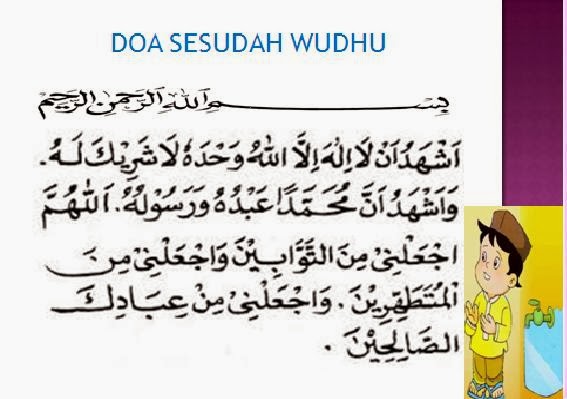 DOA SESUDAH WUDHU
بِسْمِ اللهِ الرَّحْمٰنِ الرَّحِيْمِ
اَشْهَدُ اَنْ لَا اِلٰهَ اِلَّا اللهُ وَحْدَهُ لَا شَرِيْكَ لَهُ.
وَاَشْهَدُ اَنَّ مُحَمَّدًا عَبْدُهُ وَرَسُوْلُهُ. اَللّٰهُمَّ
اجْعَلْنِىْ مِنَ التَّوَّابِيْنَ وَاجْعَلْنِىْ مِنَ
الْمُتَطَهِّرِيْنَ. وَاجْعَلْنِىْ مِنْ عِبَادِكَ
الصَّالِحِيْنَ.